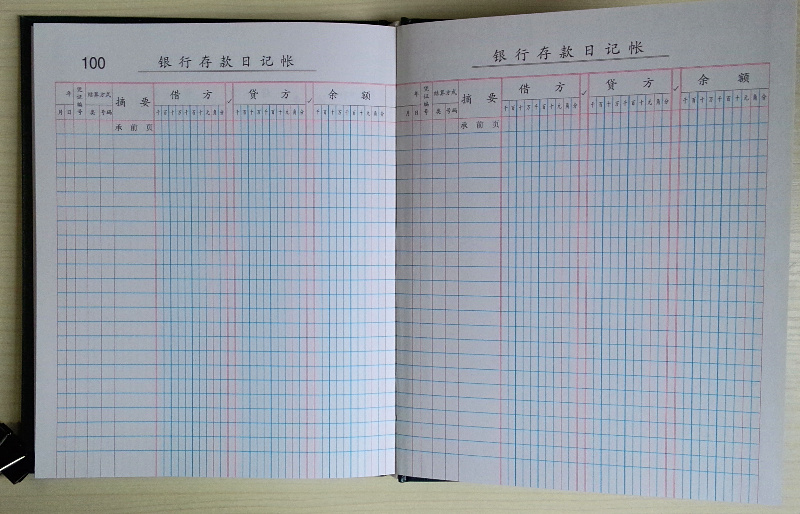 100
银行存款日记帐
年 凭证编号 结算方式 摘要 借方 ✓ 贷方 ✓ 余额
月 日 类 号编 千百十万千百十元角分 千百十万千百十元角分 千百十万千百十元角分
承前页
银行存款日记帐
年 凭证编号 结算方式 摘要 借方 ✓ 贷方 ✓ 余额
月 日 类 号编 千百十万千百十元角分 千百十万千百十元角分 千百十万千百十元角分
承前页